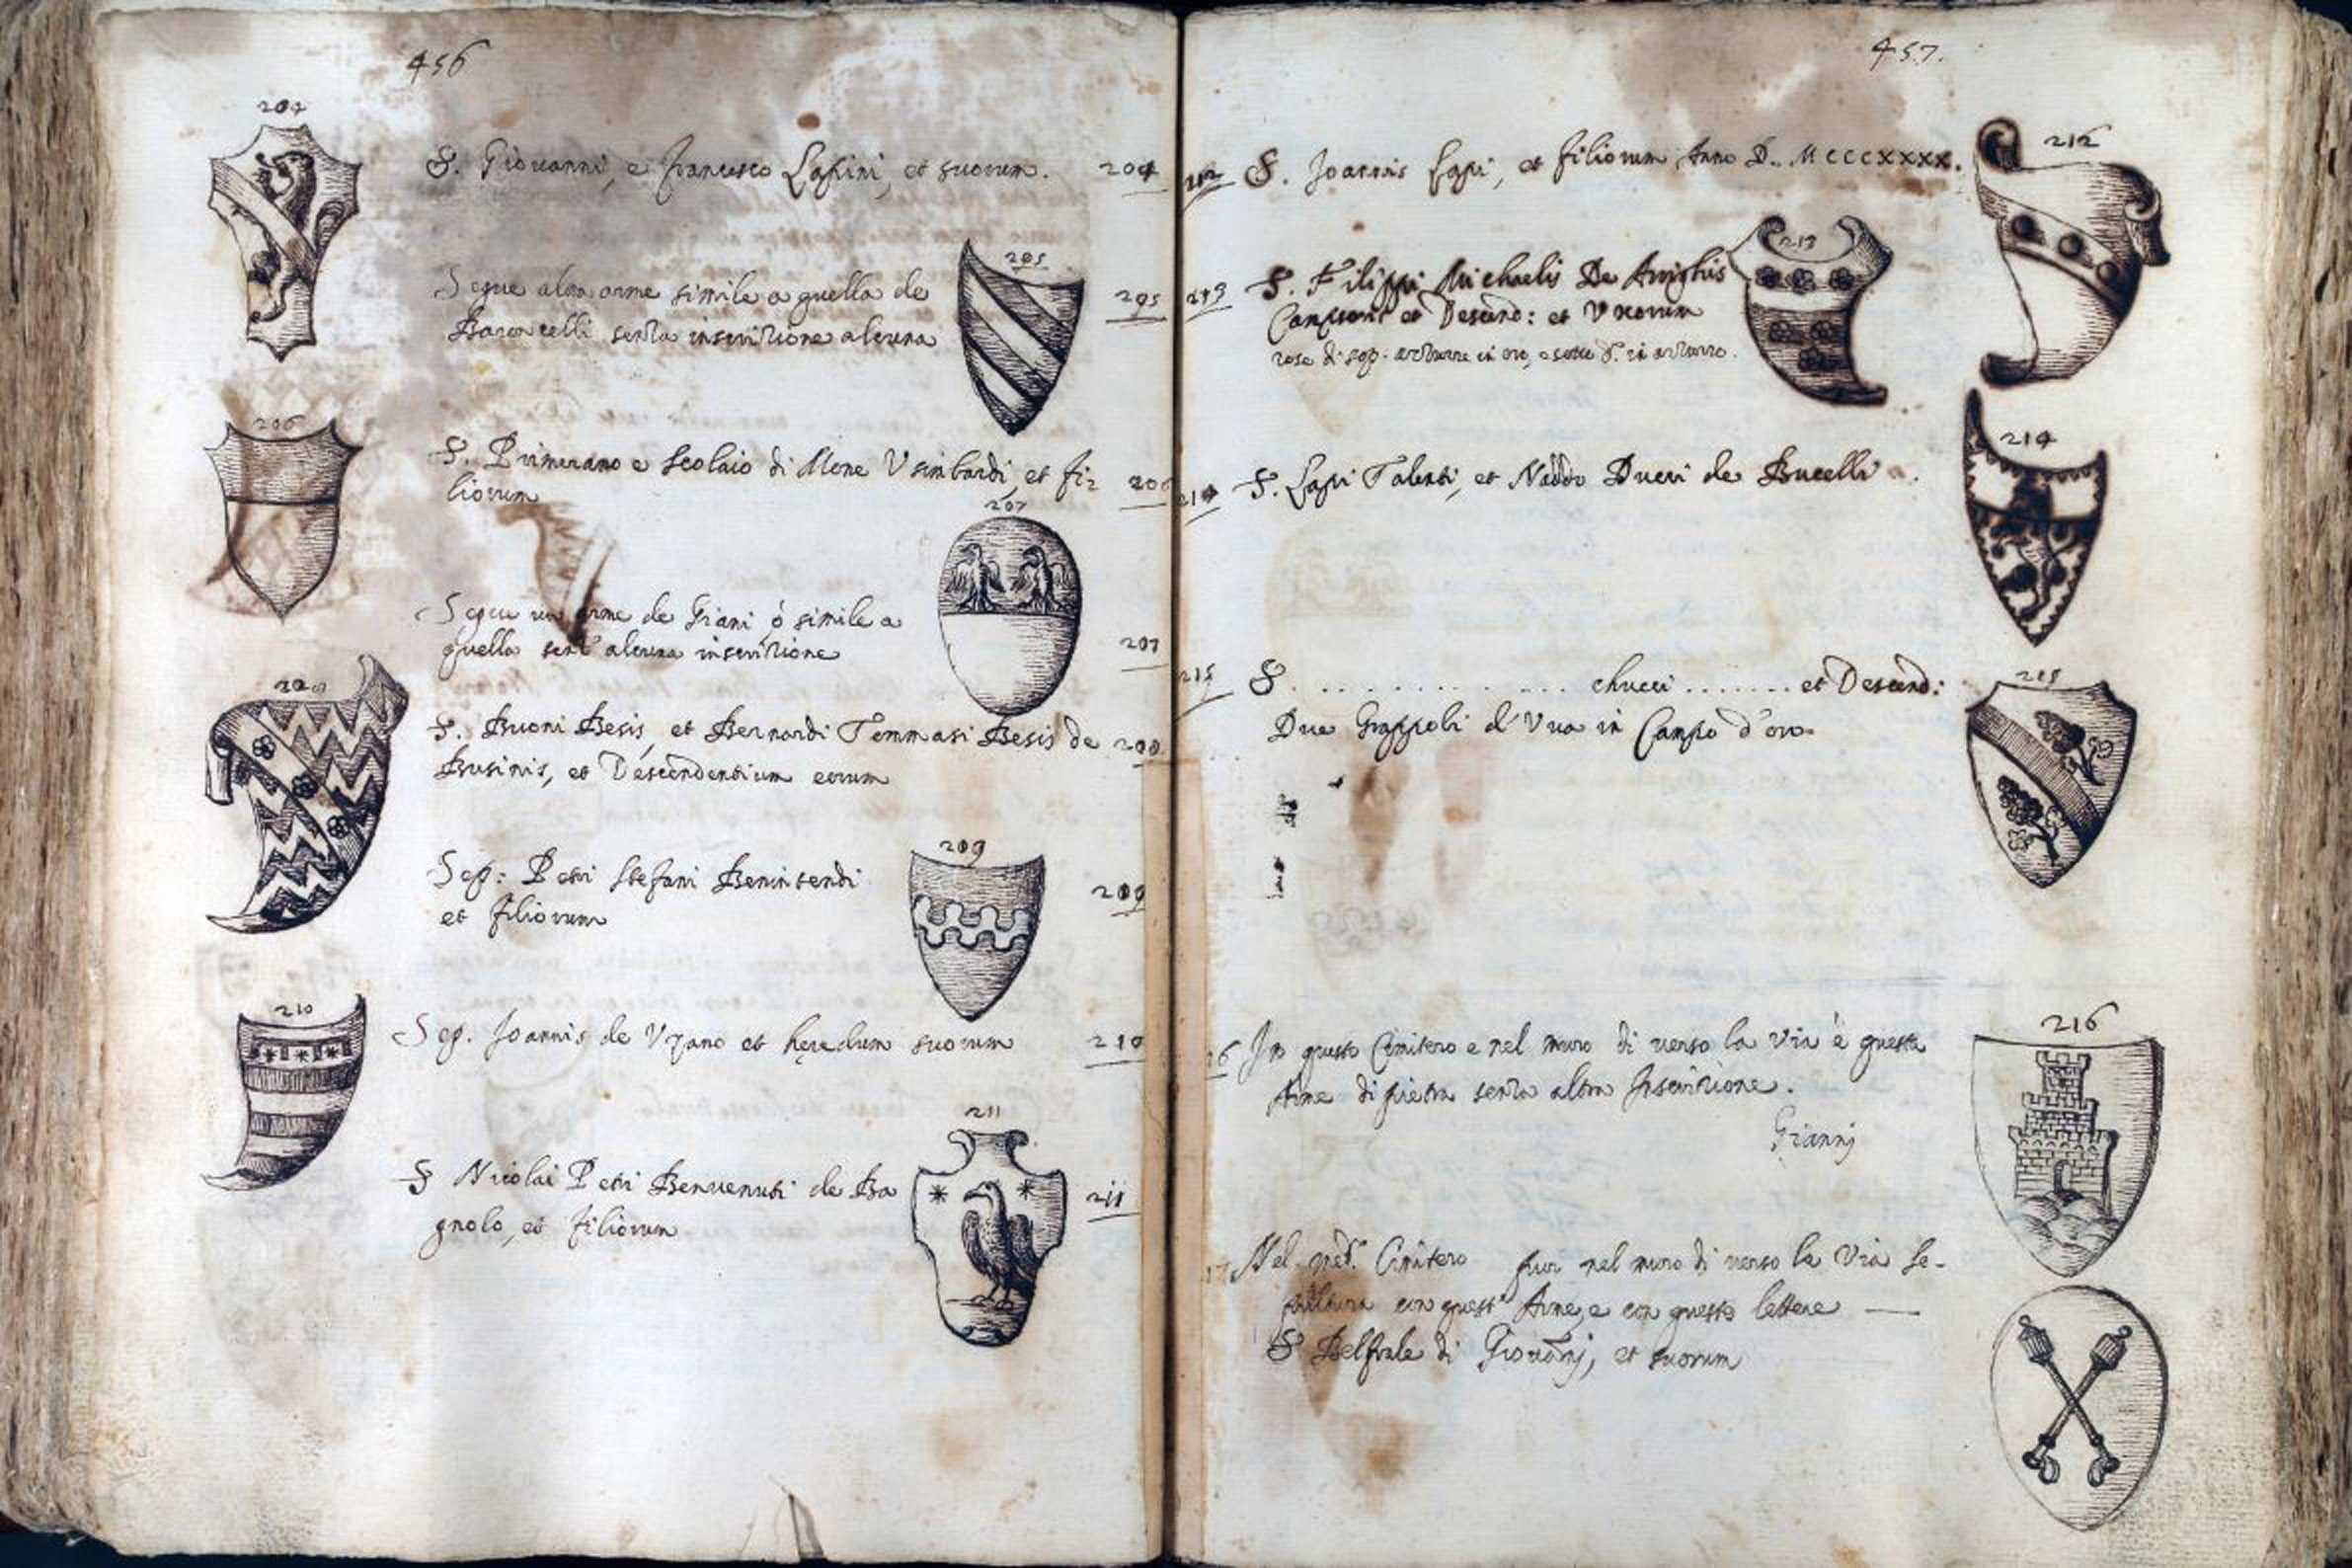 456
204
S. Giovanni, e Francesco Lapini, et suorum. 204
205
Segue altra arme simile a quella de 205
Baroncelli senza inscrizione alcuna
206
S. Primerano e Scolaio di Mone Usimbardi, et fi- 206
liorum
207
Segue un arme de Giani ò simile a
quella senz' alcuna inscrizione 207
208
S. Buoni Besis, et Bernardi Tommasi Besis de 208
Businis, et Descendentium eorum
209
Sep: Petri Stefani Benintendi 209
et filiorum
210
Sep. Joannis de Uzano et heredum suorum 210
211
S Nicolai Petri Benvenuti de Ba 211
gnolo, et filiorum
457.
212
212 S. Joannis Lapi, et filiorum Anno D. MCCCXXXX.
213
213 S. Filippi Michaelis De Arrighis
et Descend: et Uxorum
rose di sop. azzurre in oro, e sotto d. in azzurro.
214
214 S. Lapi Talenti, et Naddo Ducci de Bucelli.
215
215 S. . . . . . . . . . . . . . chucci . . . . . . . et Descend:
Due Grappoli d'Uva in Campo d'oro
216
16 In questo Cimitero e nel muro di verso la Via è questa
Arme di pietra senza altra Inscrizione.
Giannj
17 Nel med.º Cimitero pur nel muro di verso la Via se-
poltura con quest' Arme, e con queste lettere —
S Belfrale di Giovānj, et suorum